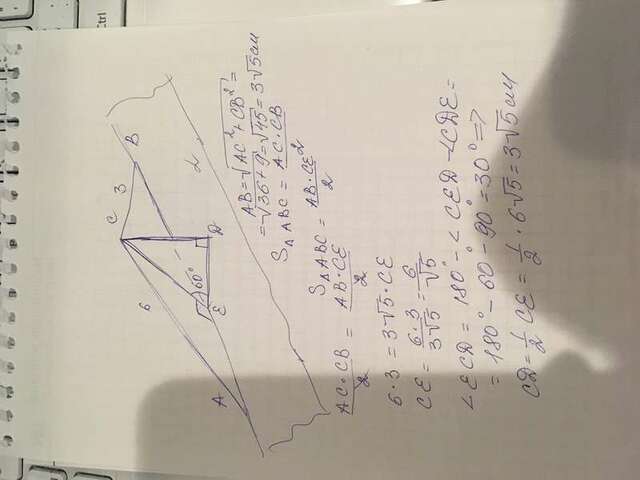 C
3
B
6
60°
D
E
A
α
AB = √AC² + CB² =
= √36 + 9 = √45 = 3√5 см
S△ABC = AC · CB / 2
S△ABC = AB · CE / 2
AC · CB / 2 = AB · CE / 2
6 · 3 = 3√5 · CE
CE = 6 · 3 / 3√5 = 6 / √5
∠ECD = 180° - ∠CED - ∠CDE =
= 180° - 60° - 90° = 30° =>
CD = 1/2 CE = 1/2 · 6√5 = 3√5 см
Ctrl